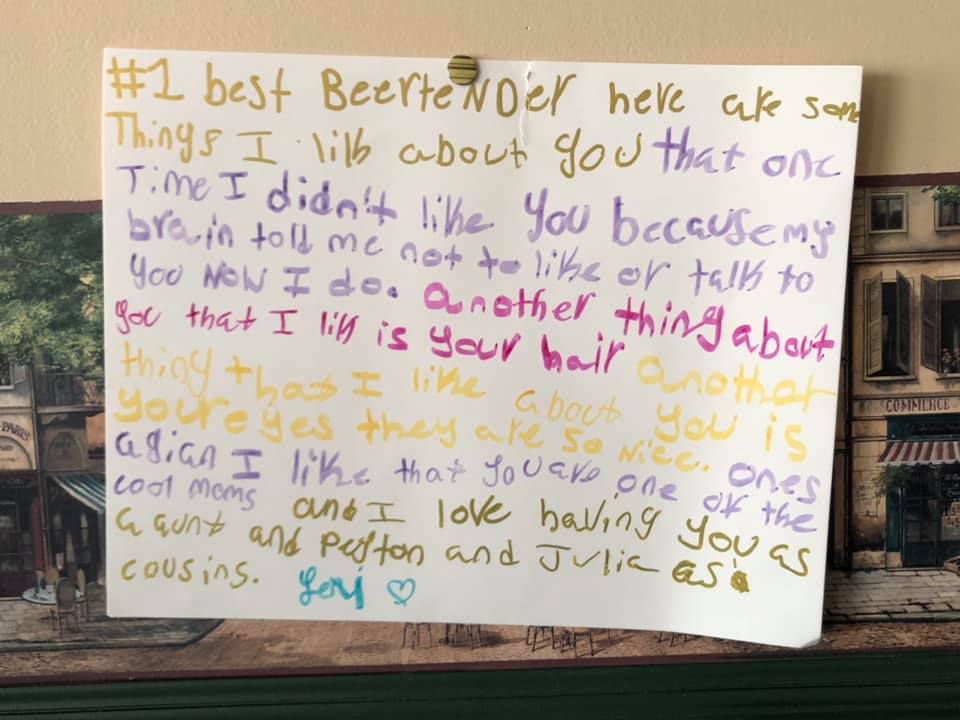 #1 best BeerteNDer here are some
Things I lik about you that one
Time I didn't like you because my
brain told me not to like or talk to
you Now I do. another thing about
you that I lik is your hair anothar
thing that I like about you is
youre eyes they are so nice. ones
agian I like that you are one of the
cool moms and I love having you as
a aunt and Peyton and Julia as a
cousins. Lexi ♡
PARIS
COMMERCE